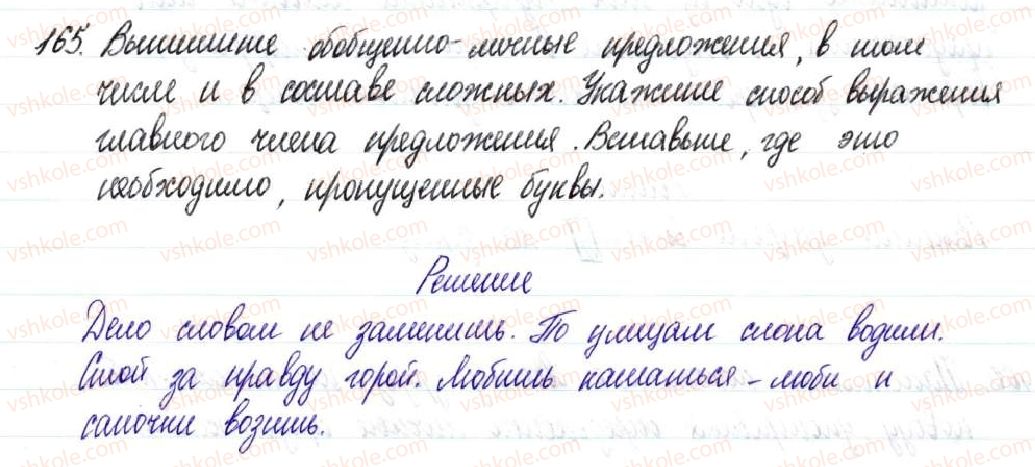 165. Выпишите обобщенно-личные предложения, в том
числе и в составе сложных. Укажите способ выражения
главного члена предложения. Вставьте, где это
необходимо, пропущенные буквы.
Решение
Дело словом не заменишь. По улицам слона водили.
Стой за правду горой. Любишь кататься - люби и
саночки возить.